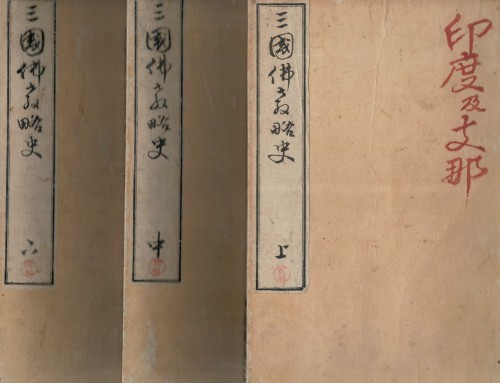 印度及支那
三國佛教略史
上
三國佛教略史
中
三國佛教略史
下